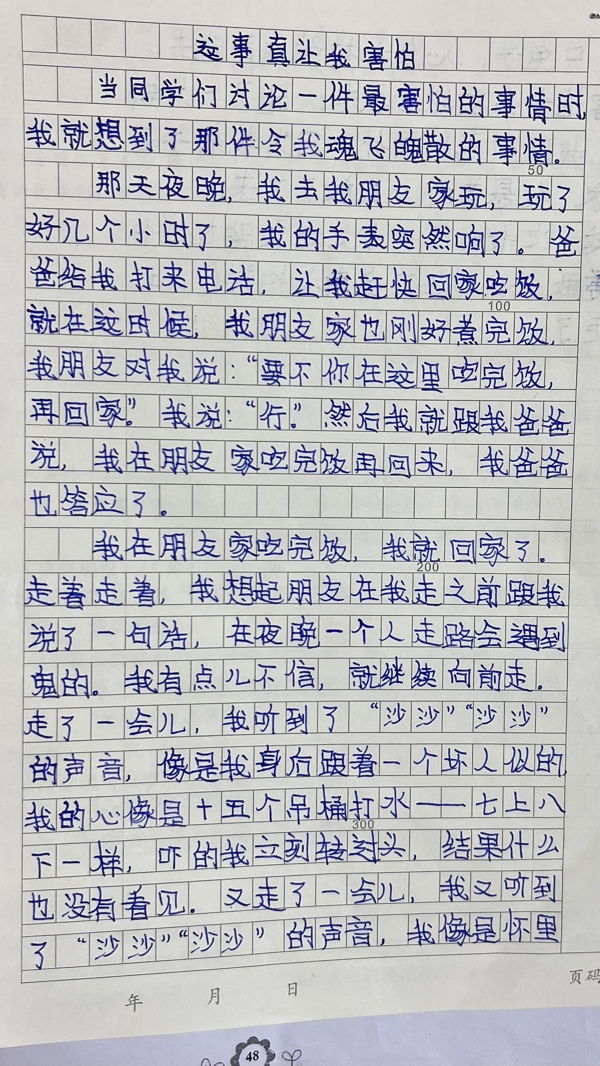 这事真让我害怕
当同学们讨论一件最害怕的事情时,
我就想到了那件令我魂飞魄散的事情。
50
那天夜晚,我去我朋友家玩,玩了
好几个小时了,我的手表突然响了。爸
爸给我打来电话,让我赶快回家吃饭,
100
就在这时候,我朋友家也刚好煮完饭,
我朋友对我说:“要不你在这里吃完饭,
再回家。”我说:“行。”然后我就跟我爸爸
说,我在朋友家吃完饭再回来,我爸爸
也答应了。
我在朋友家吃完饭,我就回家了。
200
走着走着,我想起朋友在我走之前跟我
说了一句话,在夜晚一个人走路会遇到
鬼的。我有点儿不信,就继续向前走.
走了一会儿,我听到了“沙沙”“沙沙”
的声音,像是我身后跟着一个坏人似的,
我的心像是十五个吊桶打水——七上八
300
下一样,吓的我立刻转过头,结果什么
也没有看见.又走了一会儿,我又听到
了“沙沙”“沙沙”的声音,我像是怀里
年 月 日
页码
48